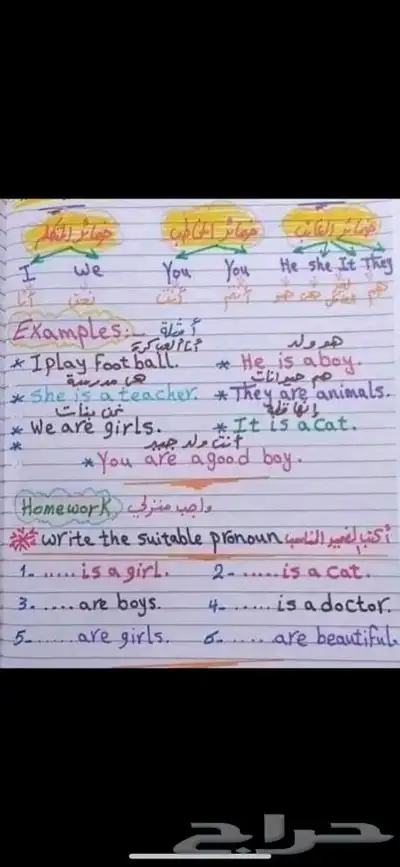 ضمائر المتكلم ضمائر المخاطب ضمائر الغائب
I we You You He she It They
أنا نحن أنت أنتم هو هي هم
Examples:- أمثلة
أنا ألعب كرة هو ولد
* I play football. * He is a boy.
هي مدرسة هم حيوانات
* She is a teacher. * They are animals.
نحن بنات إنها قطة
* We are girls. * It is a cat.
أنت ولد جيد
*
* You are a good boy.
Homework واجب منزلي
write the suitable pronoun أكتب الضمير المناسب
1- ..... is a girl. 2- ..... is a cat.
3- ..... are boys. 4- ..... is a doctor.
5- ..... are girls. 6- ..... are beautiful.
حراج